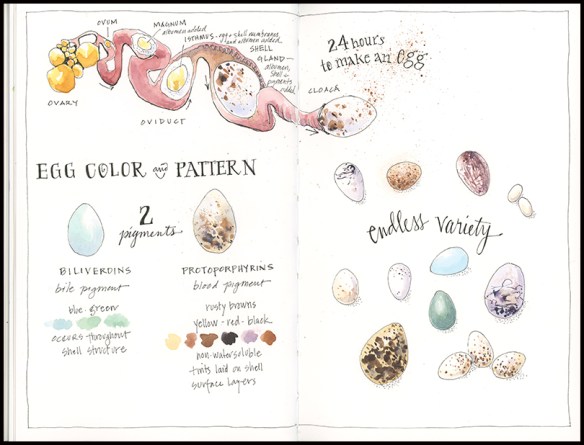 OVUM
MAGNUM
albumen added
ISTHMUS - egg & shell membranes,
and albumen added
SHELL
GLAND -
albumen,
shell &
pigments
added
CLOACA
OVARY
OVIDUCT
24 hours
to make an egg
EGG COLOR and PATTERN
2
pigments
BILIVERDINS
bile pigment
blue-green
occurs throughout
shell structure
PROTOPORPHYRINS
blood pigment
rusty browns
yellow-red-black
non-watersoluble
tints laid on shell
surface layers
endless variety